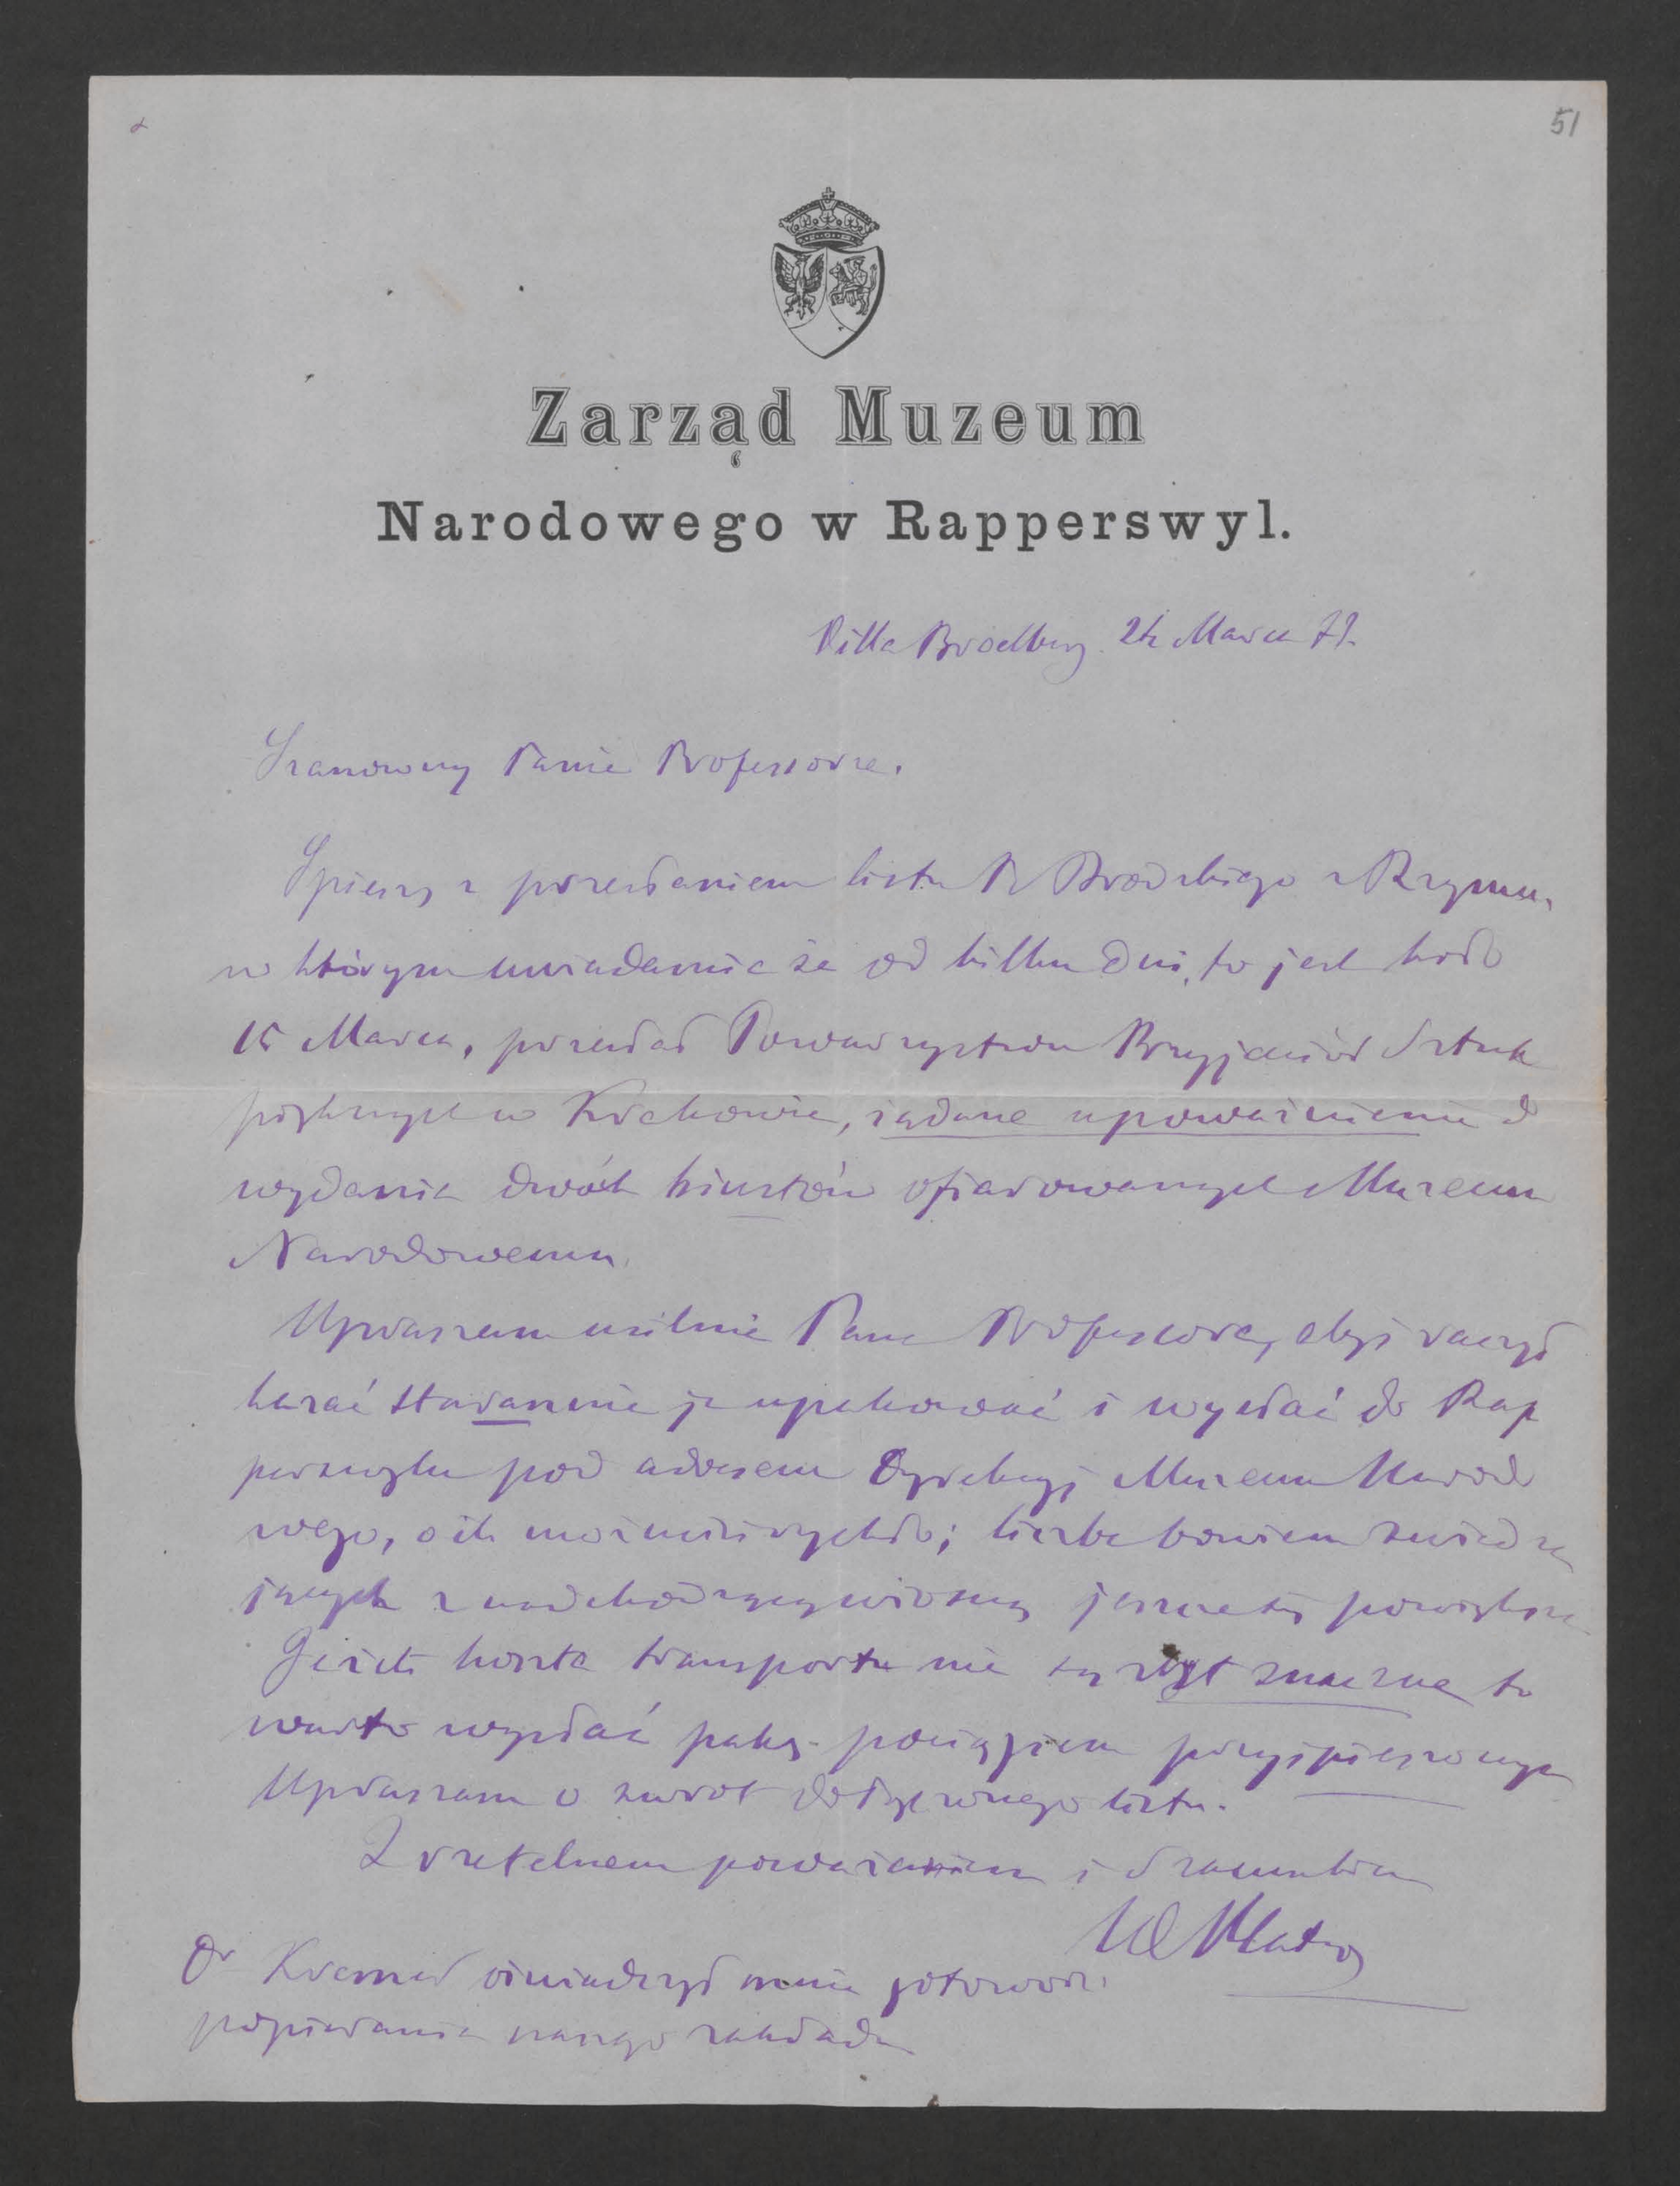 51
Zarząd Muzeum
Narodowego w Rapperswyl.
Villa Broelberg 24 Marca 79.
Szanowny Panie Professorze.
Spieszę z przesłaniem listu P. Brodzkiego z Rzymu,
w którym uwiadamia że od kilku dni, to jest koło
15 Marca, przesłał Towarzystwu Przyjaciół Sztuk
pięknych w Krakowie, żądane upoważnienie do
wydania dwóch biustów ofiarowanych Muzeum
Narodowemu.
Upraszam usilnie Pana Professora, abyś raczył
kazać starannie je upakować i wysłać do Rap
perswylu pod adresem Dyrekcyj Muzeum Narodo
wego, o ile możności rychło; liczba bowiem zwiedza
jących z nadchodzącą wiosną jeszcze się powiększa
Jeżeli koszta transportu nie są zbyt znaczne to
warto wysłać pakę pociągiem przyspieszonym
Upraszam o zwrot dołączonego listu.
Z rzetelnem poważaniem i szacunkiem
Wł Plater
Dr Kremer oświadczył mnie gotowość
popierania naszego zakładu